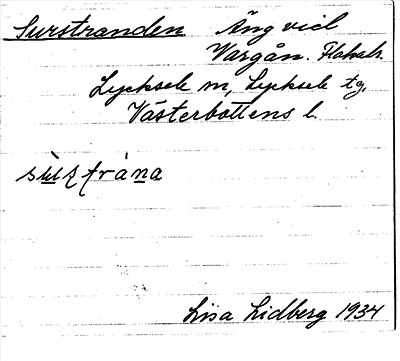 Surstranden Äng vid
Vargån. Flakatr.
Lycksele m, Lycksele tg,
Västerbottens l.
Lisa Lidberg 1934